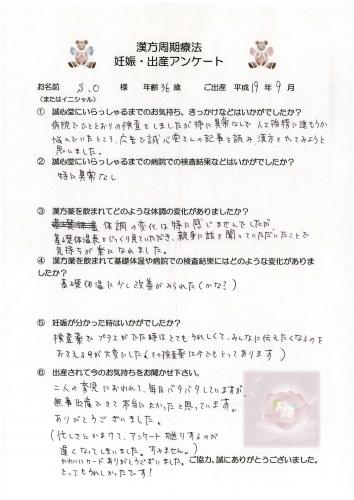 漢方周期療法
妊娠・出産アンケート
お名前 S.O 様 年齢 36 歳 ご出産 平成 19 年 9 月
(またはイニシャル)
① 誠心堂にいらっしゃるまでのお気持ち、きっかけなどはいかがでしたか?
病院でひととおりの検査をしましたが特に異常なしで人工授精に進もうか
悩んでいたところ、広告で誠心堂さんの記事を読み、漢方をやってみようと
思いました。
② 誠心堂にいらっしゃるまでの病院での検査結果などはいかがでしたか?
特に異常なし
③ 漢方薬を飲まれてどのような体調の変化がありましたか?
体調の変化は特に感じませんでしたが、
基礎体温表をじっくり見ていただき、親身に話を聞いていただいたことで
気持ちが楽になれました。
④ 漢方薬を飲まれて基礎体温や病院での検査結果にはどのような変化が
ありましたか?
基礎体温に少し改善がみられた(かな?)
⑤ 妊娠が分かった時はいかがでしたか?
検査薬でプラスがでた時はとてもうれしくて、みんなに伝えたくなるのを
おさえるのが大変でした(その検査薬は今でもとってあります)
⑥ 出産されて今のお気持ちをお聞かせ下さい。
二人の育児におわれて、毎日バタバタしていますが、
無事出産できて本当によかったと思っています。
ありがとうございました。
(忙しさにかまけて、アンケートを送りするのが
遅くなってしまいました。すみません。)
かわいいカードありがとうございました。
とってもうれしかったです!
ご協力、誠にありがとうございました。